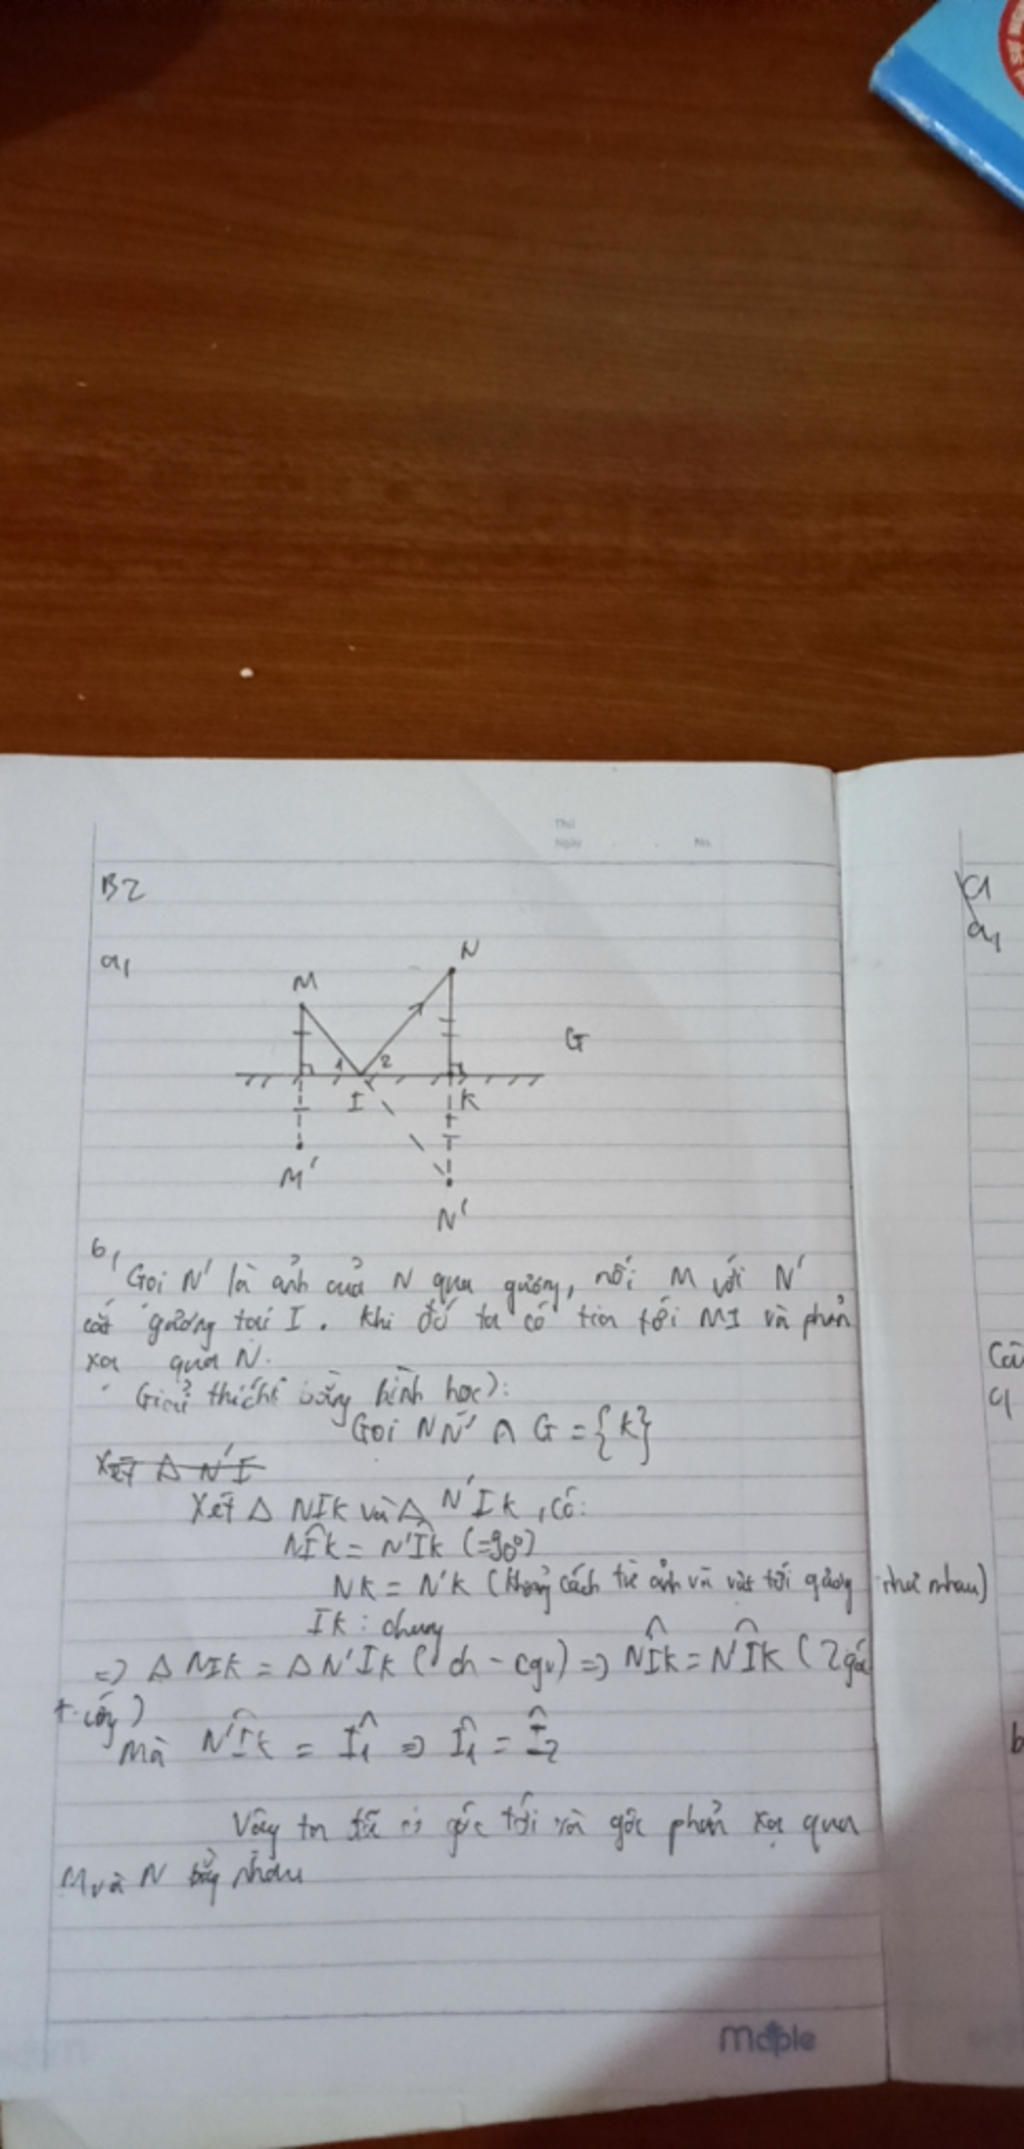 Thứ
Ngày
No.
B2
a,
M
N
G
1
2
I
K
M'
N'
b,
Gọi N' là ảnh của N qua gương, nối M với N'
cắt gương tại I. Khi đó ta có tia tới MI và phản
xạ qua N.
Giải thích bằng hình học):
Gọi NN' ∩ G = {K}
Xét Δ N'I
Xét Δ NIK và Δ N'IK, có:
NIK = N'IK (=90°)
NK = N'K (khoảng cách từ ảnh và vật tới gương như nhau)
IK: chung
=> Δ NIK = Δ N'IK (ch - cgv) => NIK = N'IK (2 góc
t. ứng)
Mà N'IK = I1 => I1 = I2
Vậy ta góc tới và góc phản xạ qua
M và N bằng nhau
Maple
a
a,
Câ
a
b